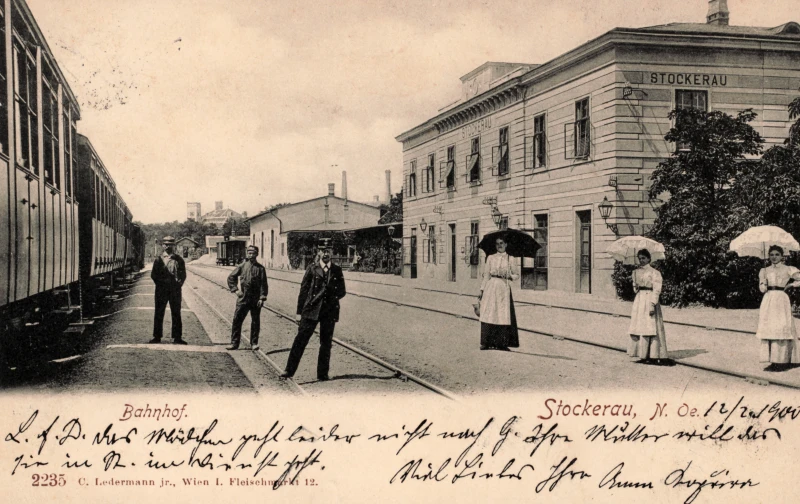 STOCKERAU
STOCKERAU
Bahnhof.
Stockerau, N. Oe. 12/2 1900
L. f. D. das Mädchen geht leider nicht nach G. Ihre Mutter will das
sie in St. im Dienst geht.
Viel Liebes Ihre Anna
2235 C. Ledermann jr., Wien I. Fleischmarkt 12.